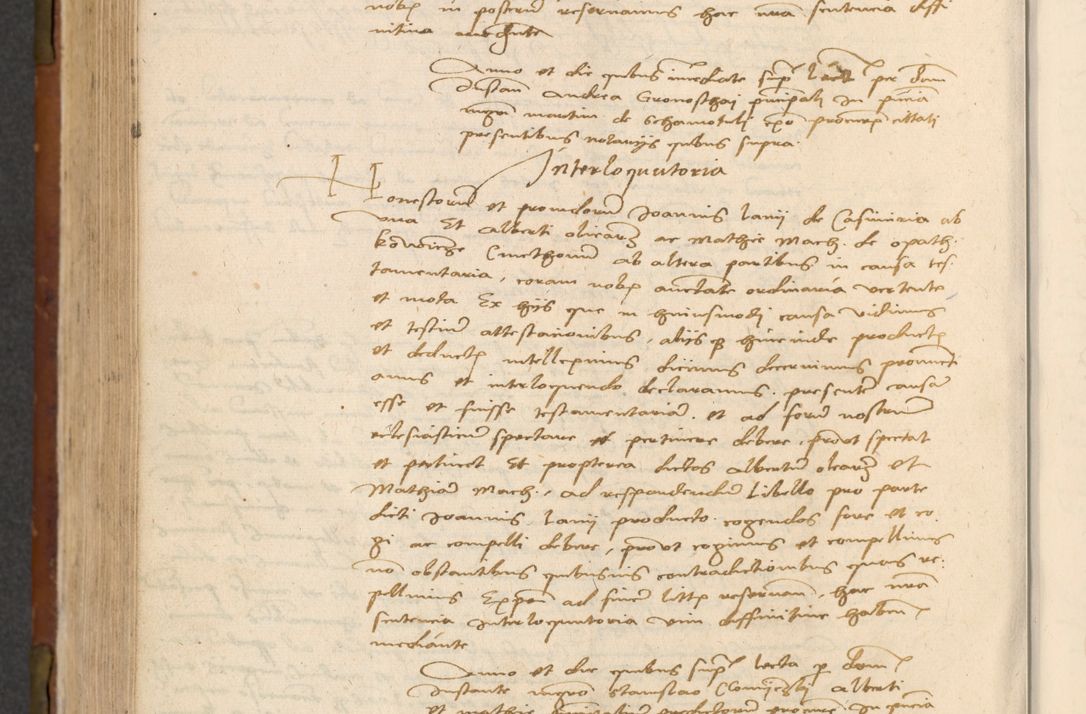 nobis in posterum reservamus hac nra sentencia diffi
nitiva mediante
Anno et die quibus imediate supra lecta per dnm
Instan Andrea Gronosthaj principali In pncia
mgri martini de Schamotuli ex pocuris citati
presentibus notariis quibus supra
Interloquutoria
Honestorum et providorum Joannis lanij de Casimiria ab
una Et Alberti olearz ac Mathie Mach. de opath
kmethonum ab altera partibus in causa tes
tamentaria, coram nobis auctate ordinaria vertente
et mota Ex hijs que in huiusmodi causa vidimus
et testium attestacionibus, alijsq hincinde productis
et deductis intelleximus, dicimus decernimus pronuncci
amus et interloquendo declaramus. presentem causam
esse et fuisse testamentariam. et ad forum nostrum
eclesiasticum spectare et pertinere debere, prout spectat
et pertinet Et propterea dictos Albertum olearz et
Mathiam Mach., ad respondendum Libello pro parte
dicti Joannis lanij producto. cogendos fore et co
gi ac compelli debere, prout cogimus et compellimus
no obstantibus quibusvis contradictionibus quas re:
pellimus Exp ad finem littis reservam, hac nra
sentencia Interloquutoria vim diffinitive haben
mediante
Anno et die quibus supra lecta p domi
Instante mgro Stanislao Alberti
et mathie predictorum procure. In pncia